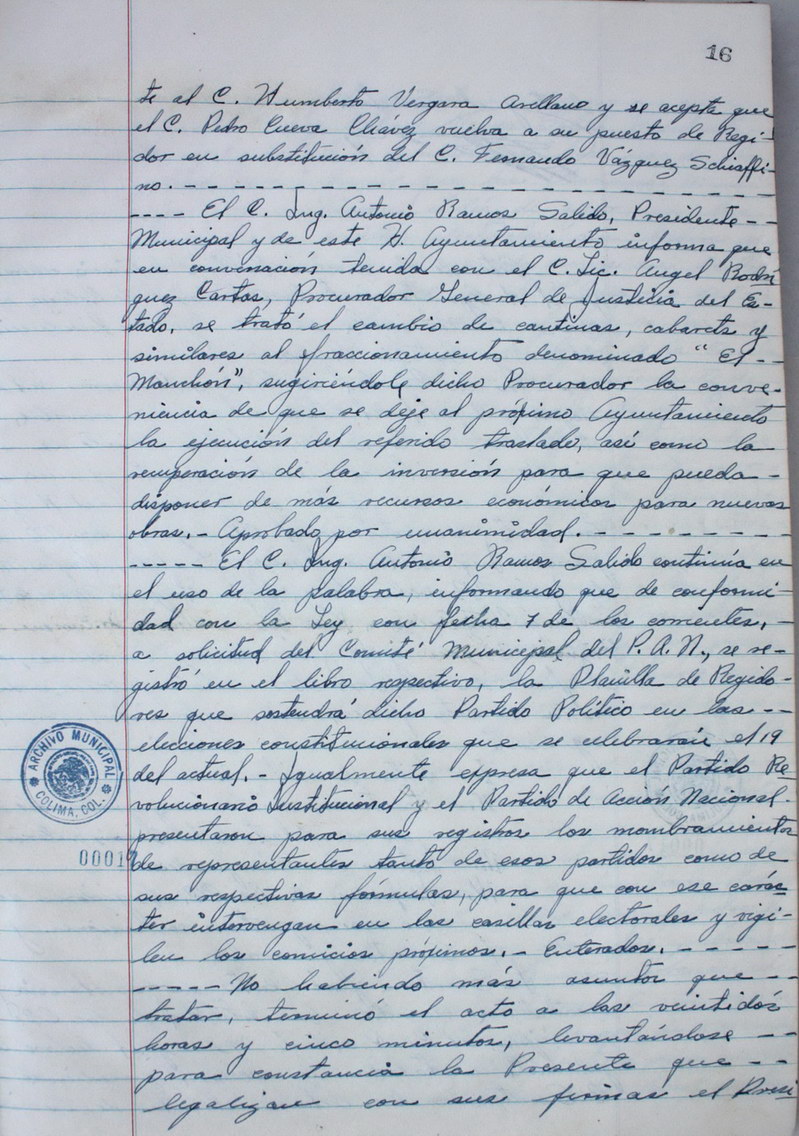 16
te al C. Humberto Vergara Arellano y se acepta que
el C. Pedro Cueva Chávez vuelva a su puesto de Regi-
dor en substitución del C. Fernando Vázquez Schiaffi-
no. - - - - - - - - - - - - - - - - - - - -
- - - - El C. Ing. Antonio Ramos Salido, Presidente - -
Municipal y de este H. Ayuntamiento informa que
en conversación tenida con el C. Lic. Angel Rodrí
guez Cartas, Procurador General de Justicia del Es-
tado, se trató el cambio de cantinas, cabarets y
similares al fraccionamiento denominado "El - -
Manchón", sugiriéndole dicho Procurador la conve-
niencia de que se deje al próximo Ayuntamiento
la ejecución del referido traslado, así como la
recuperación de la inversión para que pueda -
disponer de más recursos económicos para nuevas
obras. - Aprobado por unanimidad. - - - - - - - -
- - - - - El C. Ing. Antonio Ramos Salido continúa en
el uso de la palabra, informando que de conformi-
dad con la Ley con fecha 7 de los corrientes, -
a solicitud del Comité Municipal del P.A.N., se re-
gistró en el libro respectivo, la Planilla de Regido-
res que sostendrá dicho Partido Político en las - -
elecciones constitucionales que se celebrarán el 19
del actual. - Igualmente expresa que el Partido Re
volucionario Institucional y el Partido de Acción Nacional -
presentaron para sus registros los nombramientos
de representantes tanto de esos partidos como de
sus respectivas fórmulas, para que con ese carác
ter intervengan en las casillas electorales y vigi-
len los comicios próximos. - Enterados. - - - - - -
- - - - - No habiendo más asuntos que - -
tratar, terminó el acto a las veintidós
horas y cinco minutos, levantándose - -
para constancia la Presente que - -
legalizan con sus firmas el Presi
ARCHIVO MUNICIPAL
COLIMA, COL.